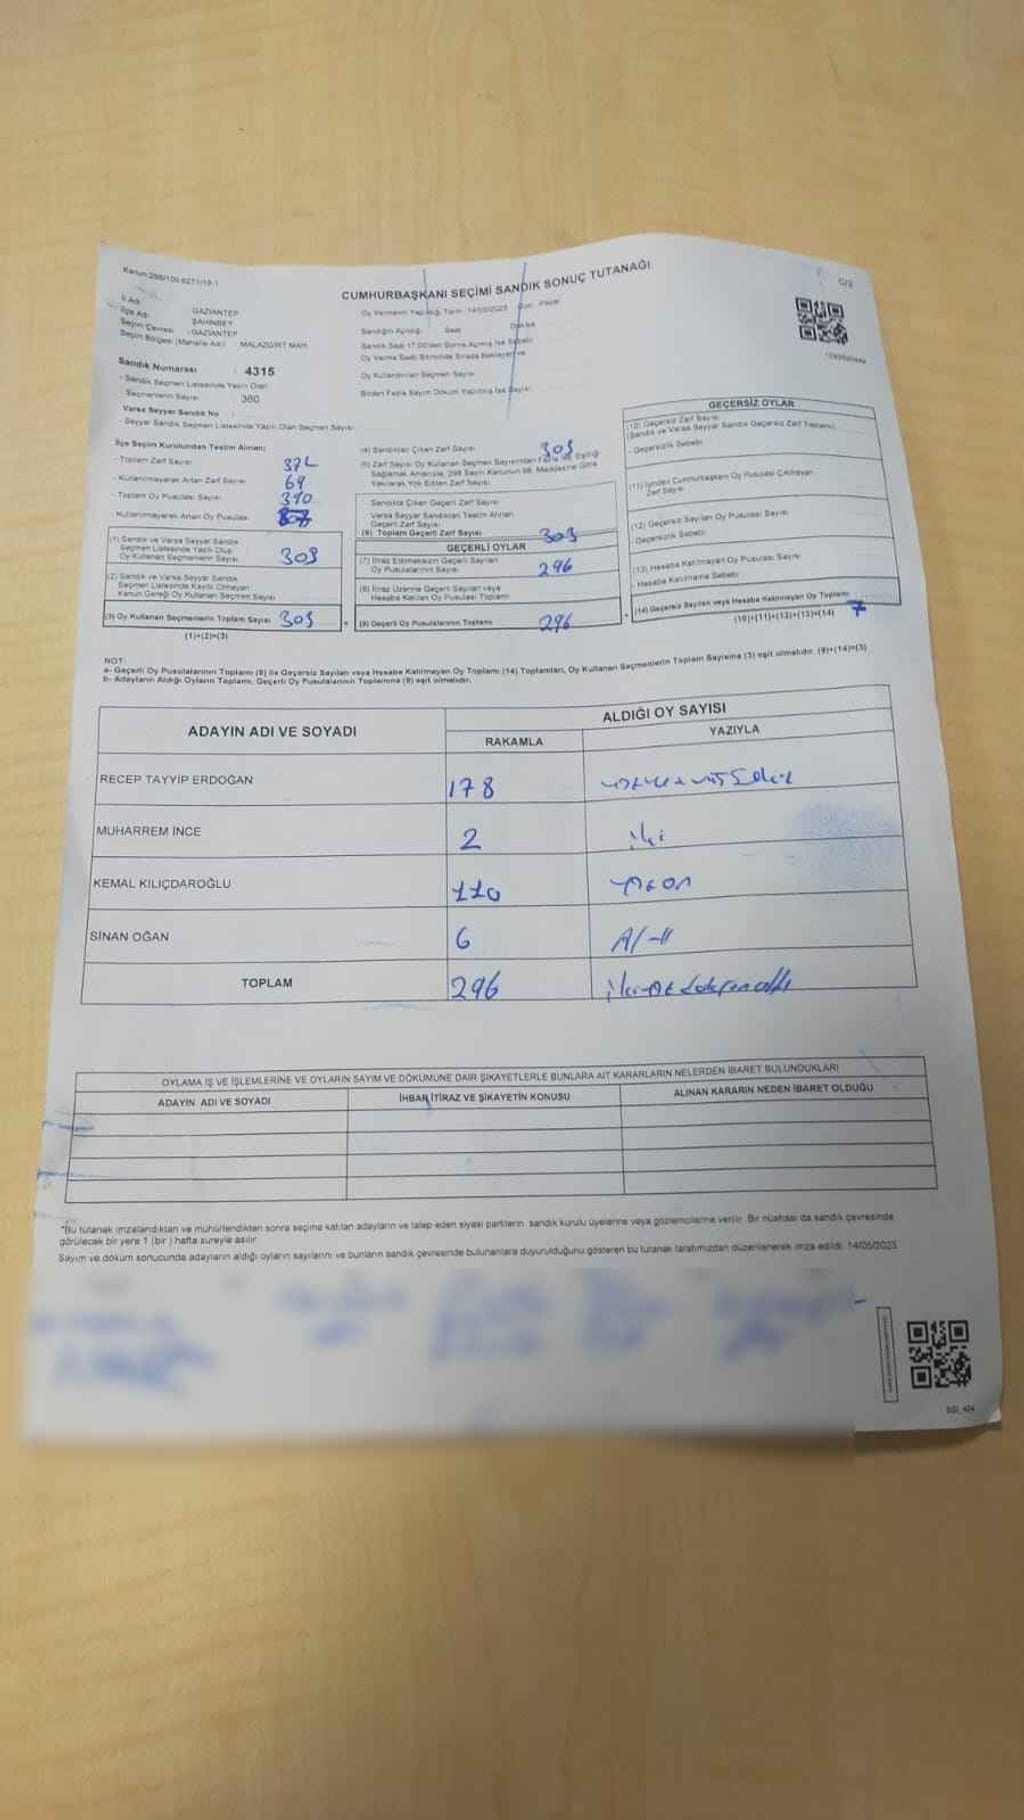 CUMHURBAŞKANI SEÇİMİ SANDIK SONUÇ TUTANAĞI
İl Adı GAZİANTEP
İlçe Adı ŞAHİNBEY
Seçim Çevresi GAZİANTEP
Seçim Bölgesi (Mahalle Adı) MALAZGİRT MAH.
Sandık Numarası 4315
- Sandık Seçmen Listesinde Yazılı Olan
Seçmenlerin Sayısı 360
Varsa Seyyar Sandık No
- Seyyar Sandık Seçmen Listesinde Yazılı Olan Seçmen Sayısı
Oy Kullandırılan Seçmen Sayısı
İlçe Seçim Kurulundan Teslim Alınan:
- Toplam Zarf Sayısı 372
- Kullanılmayarak Artan Zarf Sayısı 69
- Toplam Oy Pusulası Sayısı 370
- Kullanılmayarak Artan Oy Pusulası
(1) Sandık ve Varsa Seyyar Sandık
Seçmen Listesinde Yazılı Olup
Oy Kullanan Seçmenlerin Sayısı 303
(2) Sandık ve Varsa Seyyar Sandık
Seçmen Listesinde Kayıtlı Olmayan
Kanun Gereği Oy Kullanan Seçmen Sayısı
(3) Oy Kullanan Seçmenlerin Toplam Sayısı 303
(1)+(2)=(3)
(4) Sandıktan Çıkan Zarf Sayısı 303
Sandıkta Çıkan Geçerli Zarf Sayısı
Varsa Seyyar Sandıktan Teslim Alınan
Geçerli Zarf Sayısı
(6) Toplam Geçerli Zarf Sayısı 303
GEÇERLİ OYLAR
(7) İtiraz Edilmeksizin Geçerli Sayılan
Oy Pusulalarının Sayısı 296
(8) İtiraz Üzerine Geçerli Sayılan veya
Hesaba Katılan Oy Pusulası Toplamı
(9) Geçerli Oy Pusulalarının Toplamı 296
GEÇERSİZ OYLAR
(10) Geçersiz Zarf Sayısı
(Sandık ve Varsa Seyyar Sandık Geçersiz Zarf Toplamı)
- Geçersizlik Sebebi
(11) İçinden Cumhurbaşkanı Oy Pusulası Çıkmayan
Zarf Sayısı
(12) Geçersiz Sayılan Oy Pusulası Sayısı
Geçersizlik Sebebi
(13) Hesaba Katılmayan Oy Pusulası Sayısı
- Hesaba Katılmama Sebebi
(14) Geçersiz Sayılan veya Hesaba Katılmayan Oy Toplamı 7
(10)+(11)+(12)+(13)=(14)
NOT:
a- Geçerli Oy Pusulalarının Toplamı (9) ile Geçersiz Sayılan veya Hesaba Katılmayan Oy Toplamı (14) Toplamları, Oy Kullanan Seçmenlerin Toplam Sayısına (3) eşit olmalıdır. (9)+(14)=(3)
b- Adayların Aldığı Oyların Toplamı, Geçerli Oy Pusulalarının Toplamına (9) eşit olmalıdır.
ADAYIN ADI VE SOYADI ALDIĞI OY SAYISI
RAKAMLA YAZIYLA
RECEP TAYYİP ERDOĞAN 178
MUHARREM İNCE 2 iki
KEMAL KILIÇDAROĞLU 110 yüzon
SİNAN OĞAN 6 Altı
TOPLAM 296
OYLAMA İŞ VE İŞLEMLERİNE VE OYLARIN SAYIM VE DÖKÜMÜNE DAİR ŞİKAYETLERLE BUNLARA AİT KARARLARIN NELERDEN İBARET BULUNDUKLARI
ADAYIN ADI VE SOYADI İHBAR İTİRAZ VE ŞİKAYETİN KONUSU ALINAN KARARIN NEDEN İBARET OLDUĞU
*Bu tutanak imzalandıktan ve mühürlendikten sonra seçime katılan adayların ve talep eden siyasi partilerin sandık kurulu üyelerine veya gözlemcilerine verilir. Bir nüshası da sandık çevresinde
görülecek bir yere 1 (bir) hafta süreyle asılır.
Sayım ve döküm sonucunda adayların aldığı oyların sayılarını ve bunların sandık çevresinde bulunanlara duyurulduğunu gösteren bu tutanak tarafımızdan düzenlenerek imza edildi. 14/05/2023